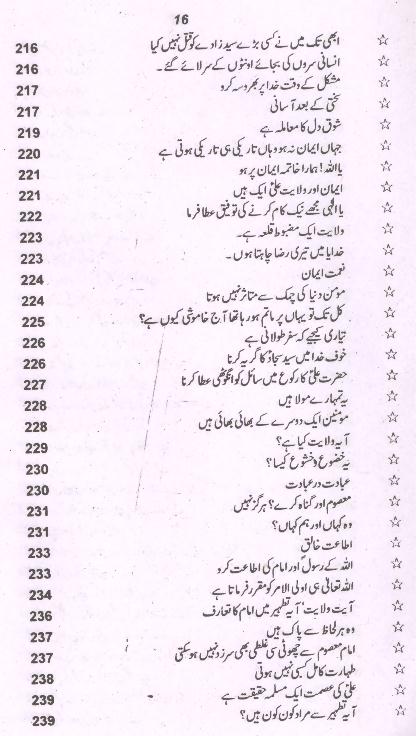 16
☆ ابھی تک میں نے کسی بڑے سیدزادے کو قتل نہیں کیا 216
☆ انسانی سروں کی بجائے اونٹوں کے سر لائے گئے۔ 216
☆ مشکل کے وقت خدا پر بھروسہ کرو 217
☆ سختی کے بعد آسانی 217
☆ شوق دل کا معاملہ ہے 219
☆ جہاں ایمان نہ ہو وہاں تاریکی ہی تاریکی ہوتی ہے 220
☆ یااللہ! ہمارا خاتمہ ایمان پر ہو 221
☆ ایمان اور ولایت علیؑ ایک ہیں 221
☆ یا الٰہی مجھے نیک کام کرنے کی توفیق عطا فرما 222
☆ ولایت ایک مضبوط قلعہ ہے۔ 223
☆ خدایا میں تیری رضا چاہتا ہوں۔ 223
☆ نعمت ایمان 224
☆ مومن دنیا کی چمک سے متاثر نہیں ہوتا 224
☆ کل تک تو یہاں پر ماتم ہو رہا تھا آج خاموشی کیوں ہے؟ 225
☆ تیاری کیجیے کہ سفر طولانی ہے 226
☆ خوف خدا میں سید سجادؑ کا گریہ کرنا 226
☆ حضرت علیؑ کا رکوع میں سائل کو انگوٹھی عطا کرنا 227
☆ یہ تمہارے مولا ہیں 228
☆ مومنین ایک دوسرے کے بھائی بھائی ہیں 228
☆ آیہ ولایت کیا ہے؟ 229
☆ یہ خضوع و خشوع کیسا؟ 230
☆ عبادت در عبادت 230
☆ معصوم اور گناہ کرے؟ ہرگز نہیں 231
☆ وہ کہاں اور ہم کہاں؟ 231
☆ اطاعت خالق 233
☆ اللہ کے رسولؐ اور امام کی اطاعت کرو 233
☆ اللہ تعالیٰ ہی اولی الامر کو مقرر فرماتا ہے 234
☆ آیت ولایت، آیہ تطہیر میں امام کا تعارف 236
☆ وہ ہر لحاظ سے پاک ہیں 237
☆ امام معصوم سے چھوٹی سی غلطی بھی سرزد نہیں ہو سکتی 237
☆ طہارت کامل کسبی نہیں ہوتی 238
☆ علیؑ کی عصمت ایک مسلمہ حقیقت ہے 239
☆ آیہ تطہیر سے مراد کون کون ہیں؟ 239